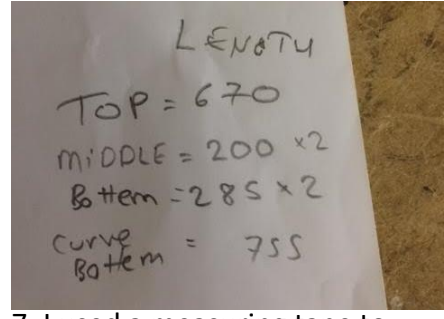 LENGTH
TOP = 670
MIDDLE = 200 x2
Bottem = 285 x 2
Curve Bottem = 755